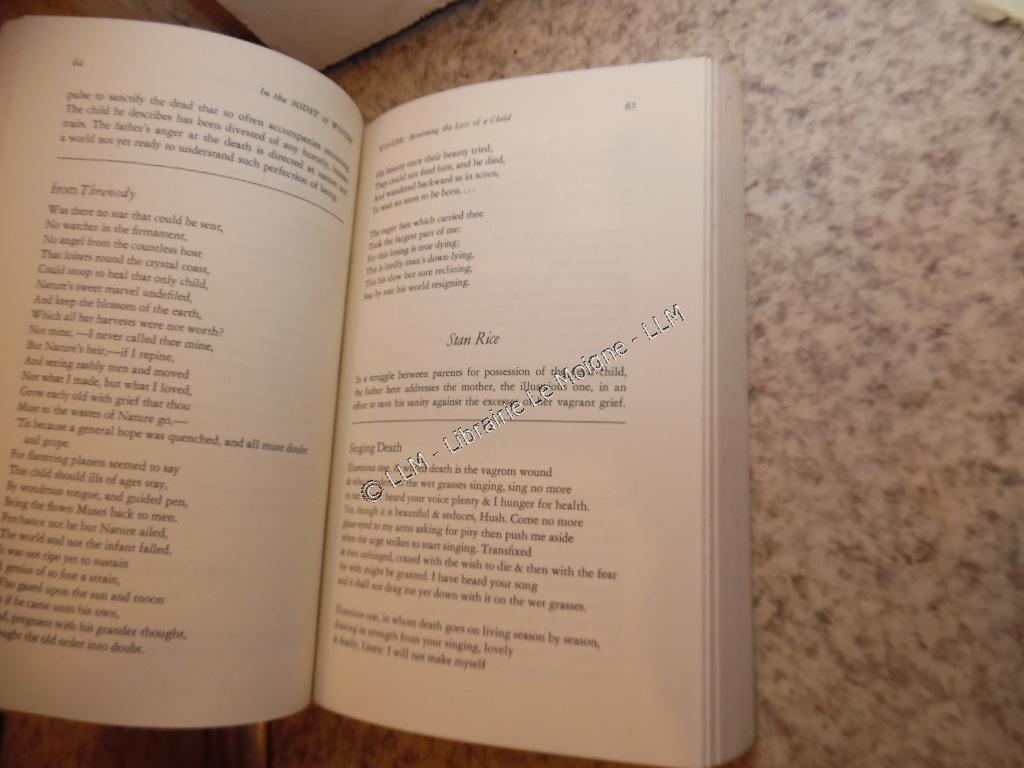 64
In the MIDST of WINTER
pulse to sanctify the dead that so often accompanies mourning.
The child he describes has been divested of any homely, human
traits. The father's anger at the death is directed at nature and
a world not yet ready to understand such perfection of being.
from Threnody
Was there no star that could be sent,
No watcher in the firmament,
No angel from the countless host
That loiters round the crystal coast,
Could stoop to heal that only child,
Nature's sweet marvel undefiled,
And keep the blossom of the earth,
Which all her harvests were not worth?
Not mine, —I never called thee mine,
But Nature's heir,—if I repine,
And seeing rashly torn and moved
Not what I made, but what I loved,
Grow early old with grief that thou
Must to the wastes of Nature go,—
'Tis because a general hope was quenched, and all must doubt
and grope.
For flattering planets seemed to say
This child should ills of ages stay,
By wondrous tongue, and guided pen,
Bring the flown Muses back to men.
Perchance not he but Nature ailed,
The world and not the infant failed.
was not ripe yet to sustain
genius of so fine a strain,
Who gazed upon the sun and moon
if he came unto his own,
pregnant with his grander thought,
the old order into doubt.
65
WINTER: Mourning the Loss of a Child
His beauty once their beauty tried;
They could not feed him, and he died,
And wandered backward as in scorn,
To wait an aeon to be born. . . .
The eager fate which carried thee
Took the largest part of me:
For this losing is true dying;
This is lordly man's down-lying,
This his slow but sure reclining,
Star by star his world resigning.
Stan Rice
In a struggle between parents for possession of the child,
the father here addresses the mother, the illustrious one, in an
effort to save his sanity against the excesses of her vagrant grief.
Singing Death
Illustrious one, in whom death is the vagrom wound
& who the wet grasses singing, sing no more
to me. heard your voice plenty & I hunger for health.
Yes, though it is beautiful & seduces, Hush. Come no more
glass-eyed to my arms asking for pity then push me aside
when the urge strikes to start singing. Transfixed
& then unhinged, crazed with the wish to die & then with the fear
the wish might be granted. I have heard your song
and it shall not drag me yet down with it on the wet grasses.
Illustrious one, in whom death goes on living season by season,
drawing in strength from your singing, lovely
& deadly, Listen: I will not make myself
© LLM - Librairie Le Moigne - LLM